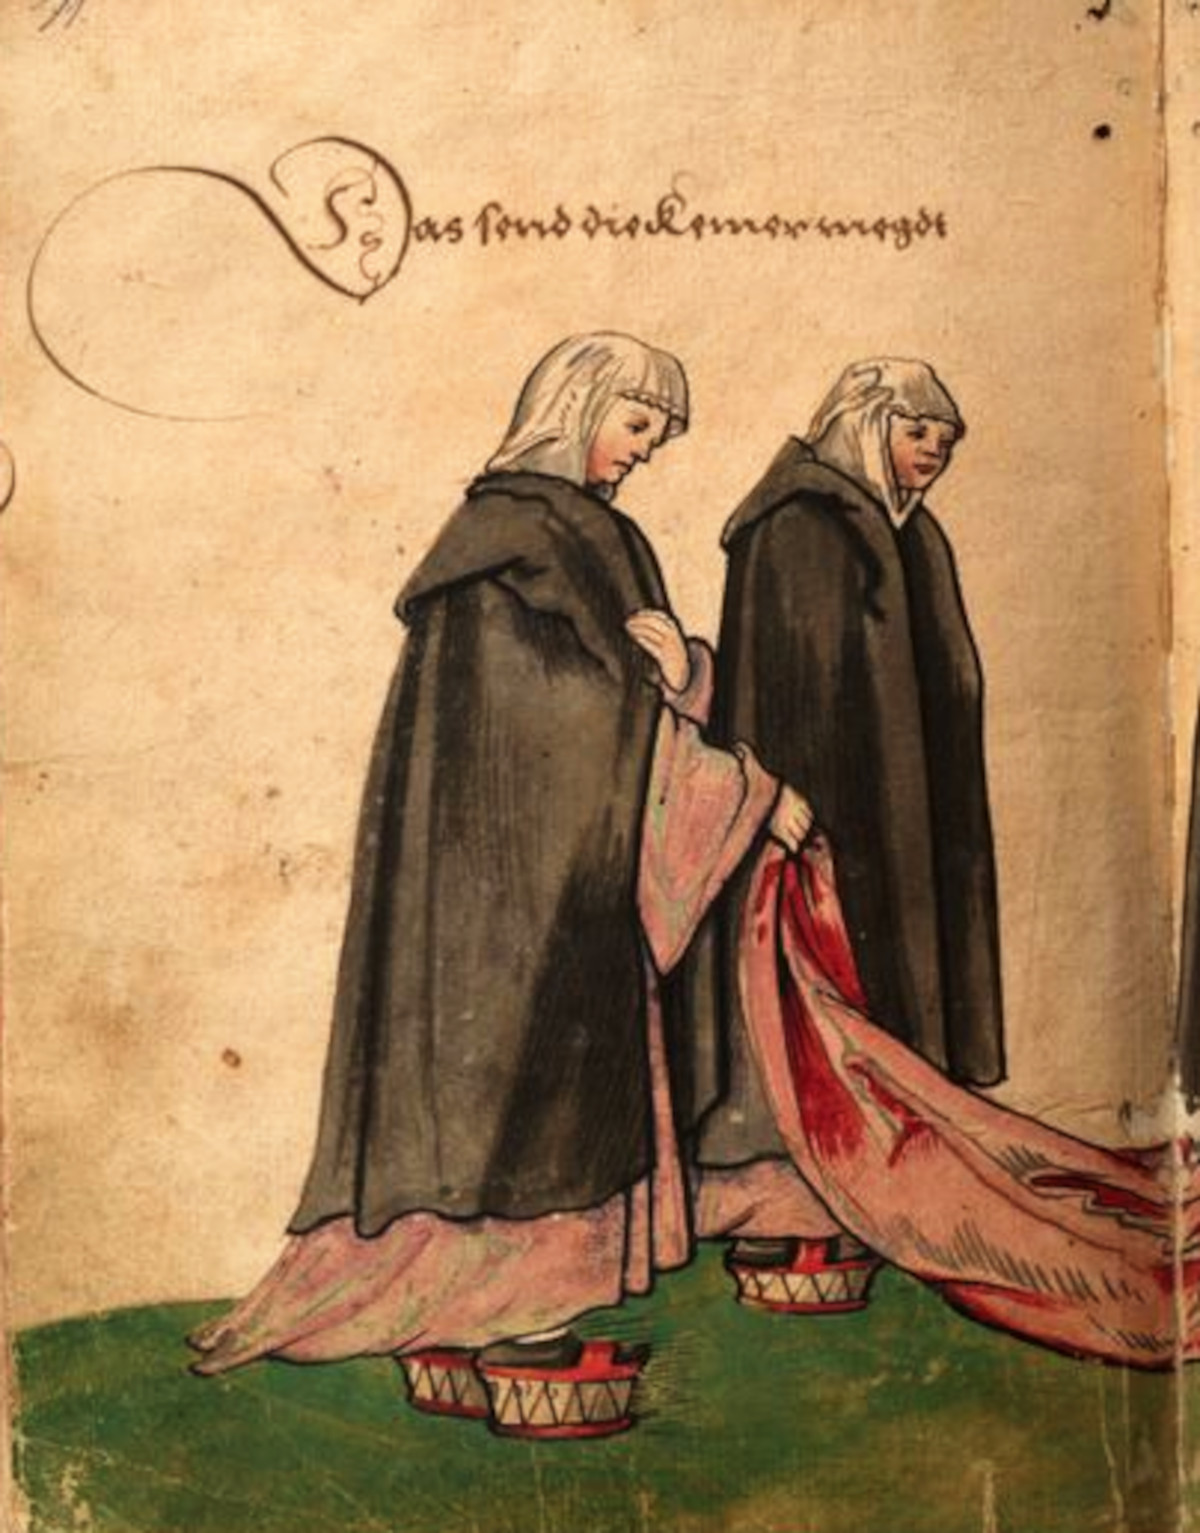 Das send die Kemer megdt